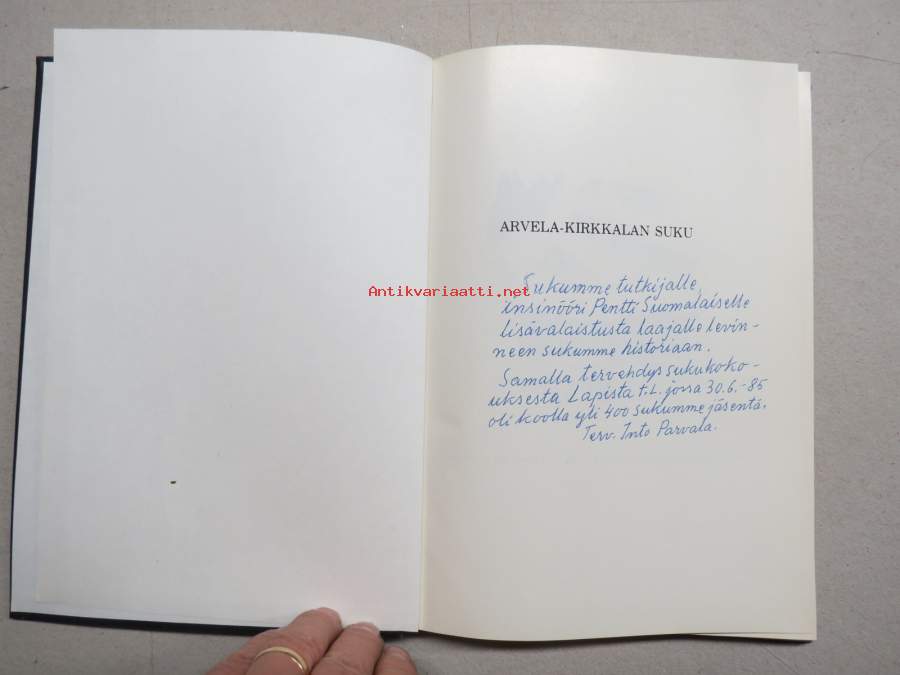 ARVELA-KIRKKALAN SUKU
Antikvariaatti.net
Sukumme tutkijalle,
insinööri Pentti Suomalaiselle
lisävalaistusta laajalle levin-
neen sukumme historiaan.
Samalla tervehdys sukukoko-
uksesta Lapista t.L. jossa 30.6.-85
oli koolla yli 400 sukumme jäsentä.
Terv. Into Parvala.